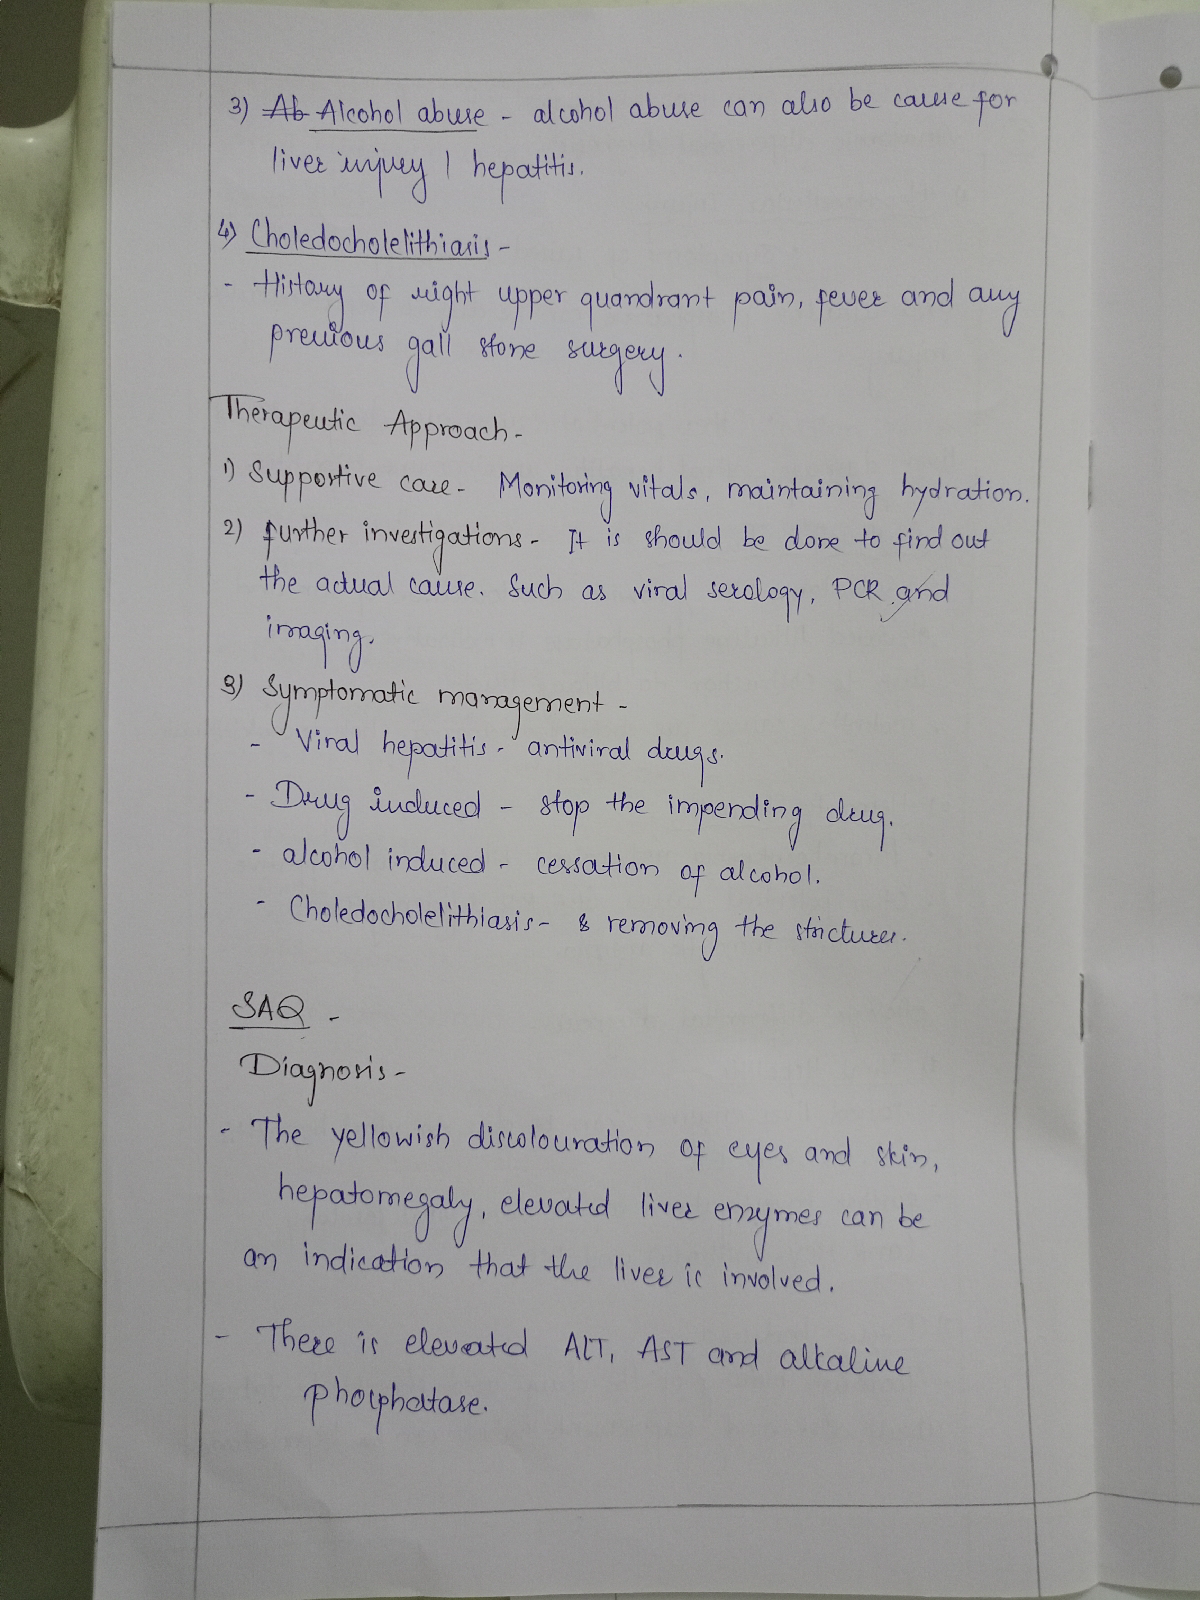 3) Ab Alcohol abuse - alcohol abuse can also be cause for
liver injury / hepatitis.
4) Choledocholelithiasis -
- History of right upper quandrant pain, fever and any
previous gall stone surgery.
Therapeutic Approach -
1) Supportive care - Monitoring vitals, maintaining hydration.
2) further investigations - It is should be done to find out
the actual cause. Such as viral serology, PCR and
imaging.
3) Symptomatic management -
- Viral hepatitis - antiviral drugs.
- Drug induced - stop the impending drug.
- alcohol induced - cessation of alcohol.
- Choledocholelithiasis - & removing the strictures.
SAQ -
Diagnosis -
- The yellowish discolouration of eyes and skin,
hepatomegaly, elevated liver enzymes can be
an indication that the liver is involved.
- There is elevated ALT, AST and alkaline
phosphatase.